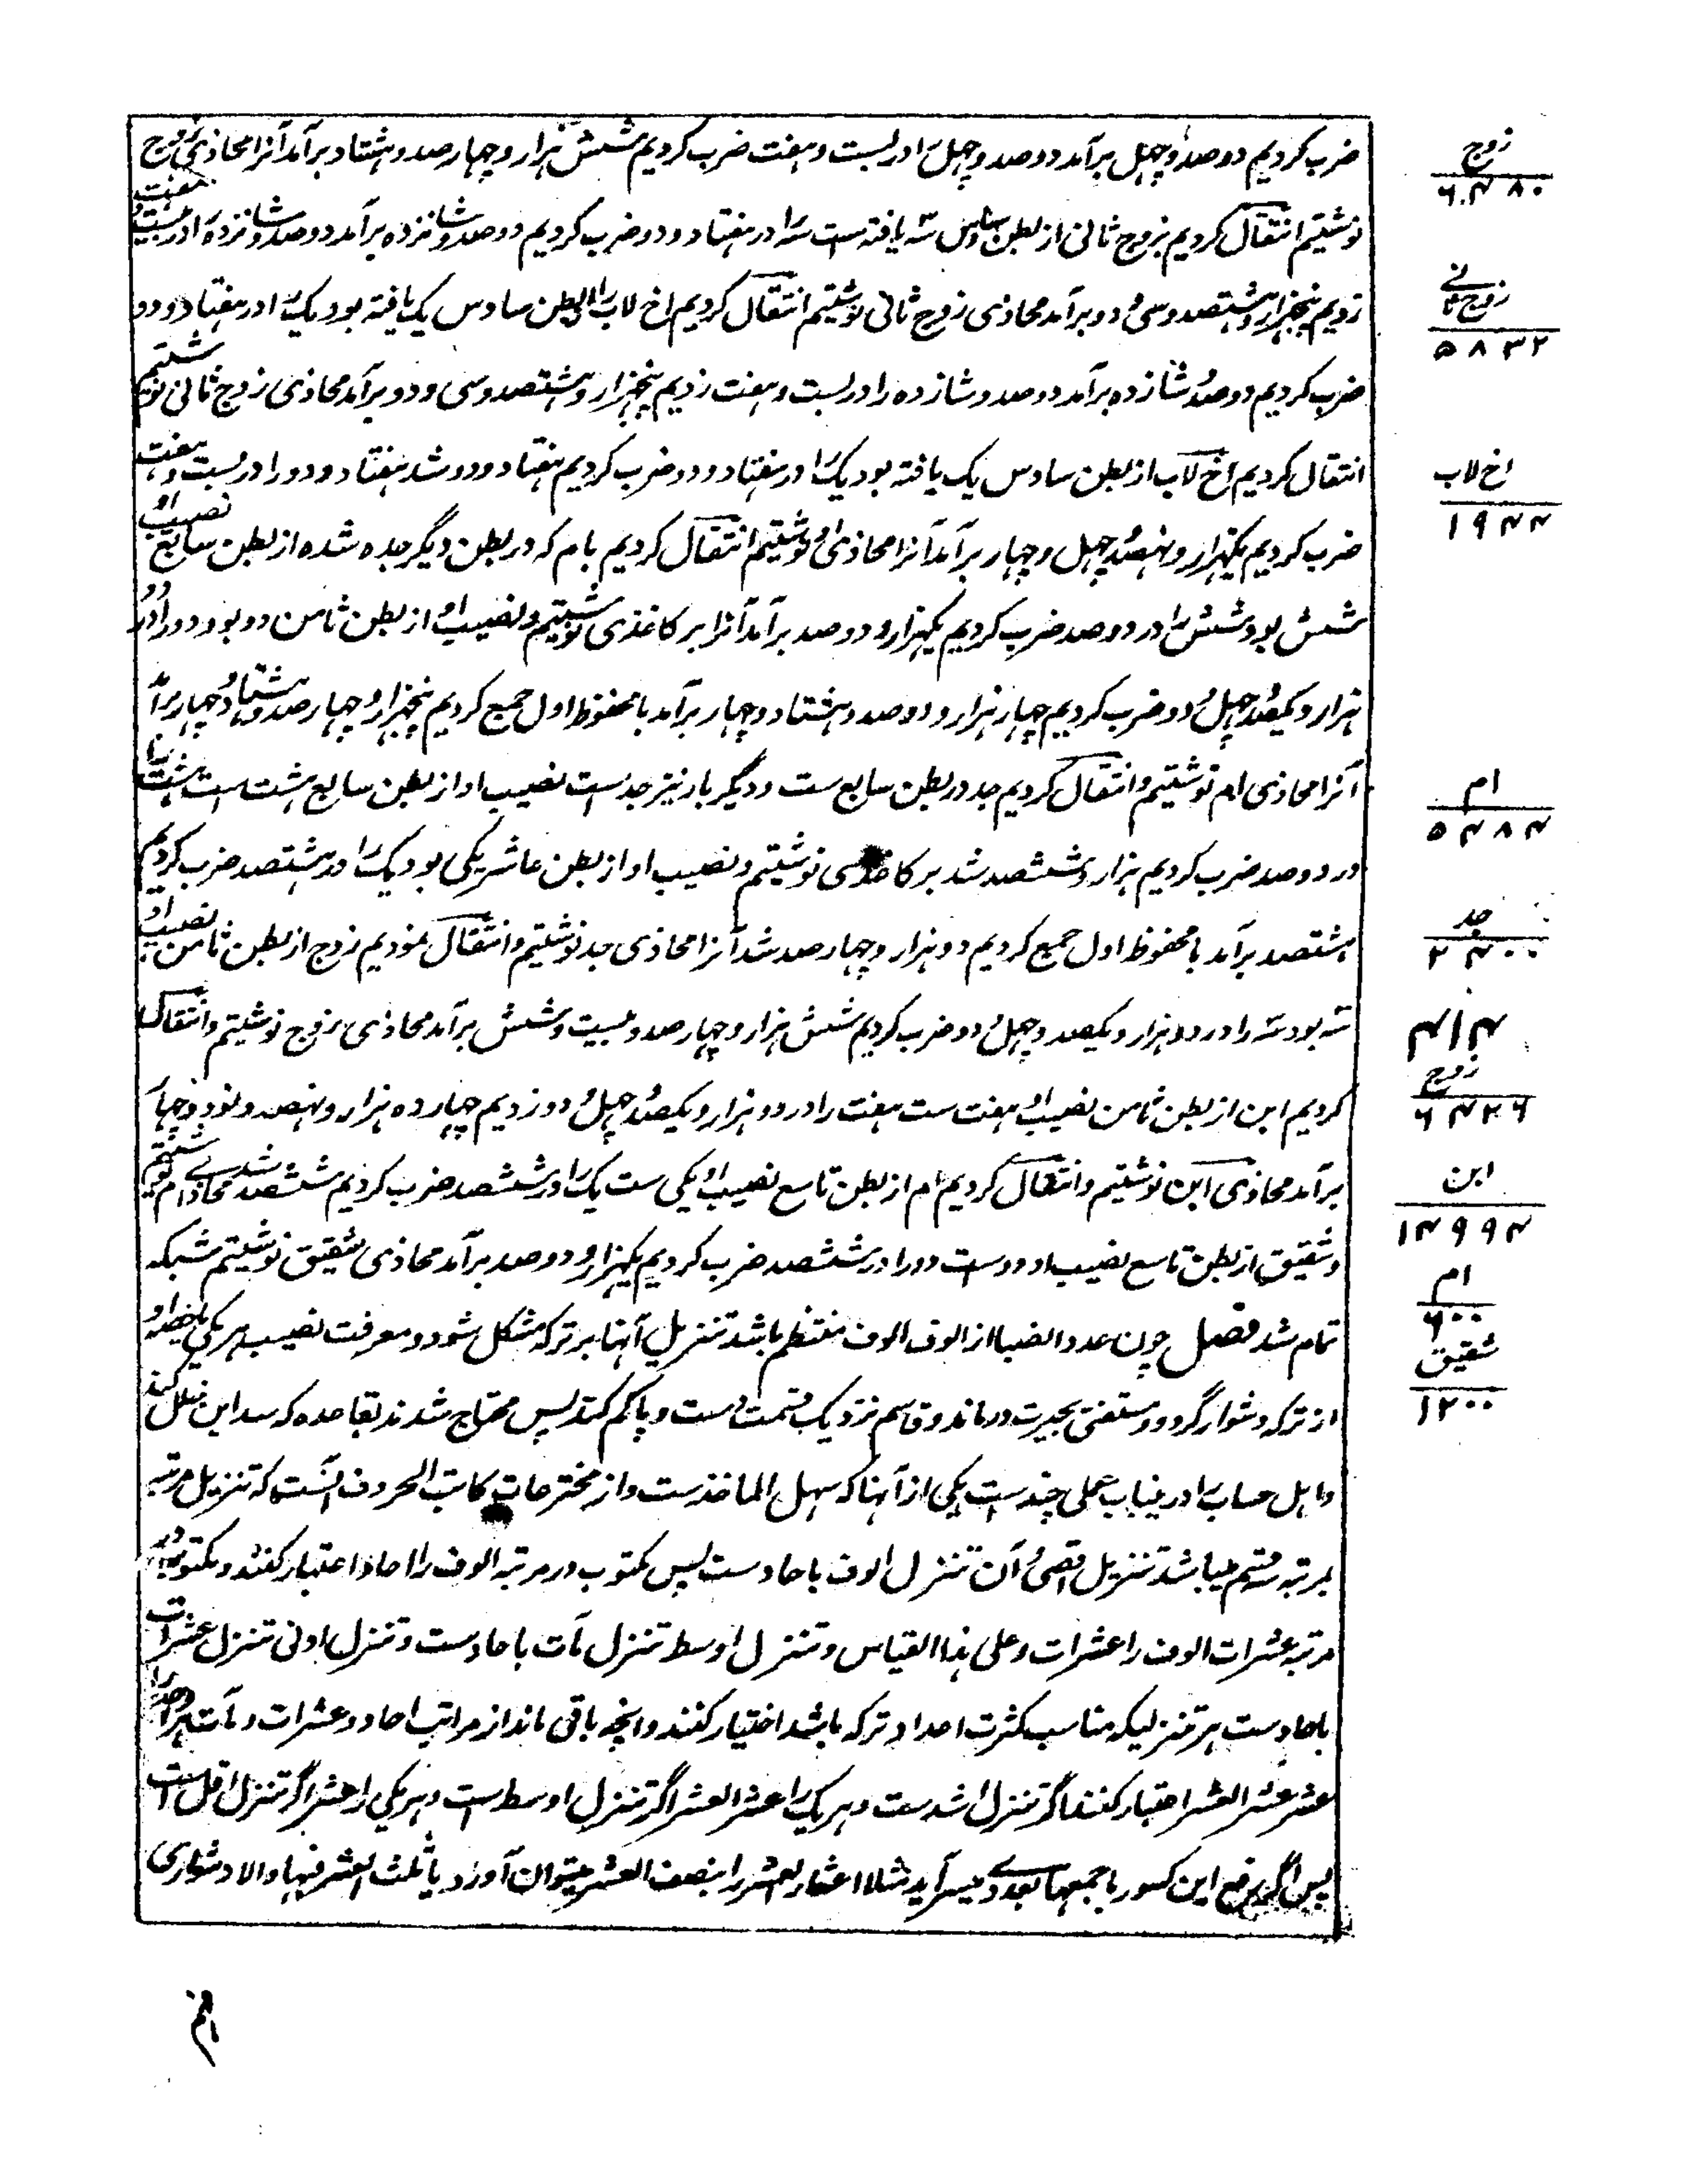 ضرب کردیم دوصد و چهل برآمد دوصد و چهل را در بست و هفت ضرب کردیم شش هزار و چهارصد و هشتاد برآمد آنرا محاذی زوج
نوشتیم انتقال کردیم بزوج ثانی از بطن سادس سه یافته ست سه را در هفتاد و دو ضرب کردیم دوصد و شانزده برآمد دوصد و شانزده را در بیست و هفت
زدیم پنجهزار و هشتصد و سی و دو برآمد محاذی زوج ثانی نوشتیم انتقال کردیم اخ لاب را از بطن سادس یک یافته بود یک را در هفتاد و دو
ضرب کردیم دوصد و شانزده برآمد دوصد و شانزده را در بست و هفت زدیم پنجهزار و هشتصد و سی و دو برآمد محاذی زوج ثانی نوشتیم
انتقال کردیم اخ لاب از بطن سادس یک یافته بود یک را در هفتاد و دو ضرب کردیم هفتاد و دو شد هفتاد و دو را در بست و هفت
ضرب کردیم یکهزار و نهصد و چهل و چهار برآمد آنرا محاذی او نوشتیم انتقال کردیم بام که در بطن دیگر جده شده از بطن سابع نصیب او
شش بود شش را در دوصد ضرب کردیم یکهزار و دوصد برآمد آنرا بر کاغذی نوشتیم و نصیب او از بطن ثامن دو بود دو را در دو
هزار و یکصد و چهل و دو ضرب کردیم چهار هزار و دوصد و هشتاد و چهار برآمد با محفوظ اول جمع کردیم پنجهزار و چهارصد و هشتاد و چهار برآمد
آنرا محاذی ام نوشتیم و انتقال کردیم جد در بطن سابع ست و دیگر بار نیز جدست نصیب او از بطن سابع هشت است هشت را
در دوصد ضرب کردیم هزار و ششصد شد بر کاغذی نوشتیم و نصیب او از بطن عاشر یکی بود یک را در هشتصد ضرب کردیم
هشتصد برآمد با محفوظ اول جمع کردیم دو هزار و چهارصد شد آنرا محاذی جد نوشتیم و انتقال نمودیم زوج از بطن ثامن نصیب او
سه بود سه را در دو هزار و یکصد و چهل و دو ضرب کردیم شش هزار و چهارصد و بیست و شش برآمد محاذی زوج نوشتیم و انتقال
کردیم ابن از بطن ثامن نصیب او هفت ست هفت را در دو هزار و یکصد و چهل و دو زدیم چهارده هزار و نهصد و نود و چهار
برآمد محاذی ابن نوشتیم و انتقال کردیم ام از بطن تاسع نصیب او یکی ست یک را در ششصد ضرب کردیم ششصد شد محاذی ام نوشتیم
و شقیق از بطن تاسع نصیب او دوست دو را در ششصد ضرب کردیم یکهزار و دوصد برآمد محاذی شقیق نوشتیم شبکه
تمام شد فصل چون عدد انصبا از الوف الوف منتظم باشد تنزیل آنها بر ترکه مشکل شود و معرفت نصیب هر یکی
از ترکه دشوار گردد و مستفتی بحیرت درماند و قاسم نزدیک قسمت دست و پا گم کند پس محتاج شدند بقاعده که سد این خلل کند
و اهل حساب را درین باب عملی چند است یکی از آنها که سهل الماخذست و از مخترعات کاتب الحروف آنست که تنزیل مرتبه
بمرتبه سه قسم میباشد تنزیل اقصی و آن تنزل الوف باحاد ست پس مکتوب در مرتبه الوف را احاد اعتبار کنند و مکتوب در
مرتبه عشرات الوف را عشرات و علی هذا القیاس و تنزل اوسط تنزل مآت باحاد ست و تنزل ادنی تنزل عشرات
باحاد ست هر تنزلیکه مناسب کثرت اعداد ترکه باشد اختیار کنند و آنچه باقی ماند از مراتب احاد و عشرات و مآت هر واحد را
عشر عشر العشر اعتبار کنند اگر تنزل اشدست و هر یک را عشر العشر اگر تنزل اوسط است و هر یکی را عشر اگر تنزل اقل است
پس اگر رفع این کسور باجمعها بعددی میسر آید مثلا اعشار العشر را بنصف العشر میتوان آورد یا ثلث العشر فبها والا دشواری
زوج
۶۴۸۰
زوج ثانی
۵۸۳۲
اخ لاب
۱۹۴۴
ام
۵۴۸۴
جد
۲۴۰۰
۴۱۴
زوج
۶۴۲۶
ابن
۱۴۹۹۴
ام
۶۰۰
شقیق
۱۲۰۰